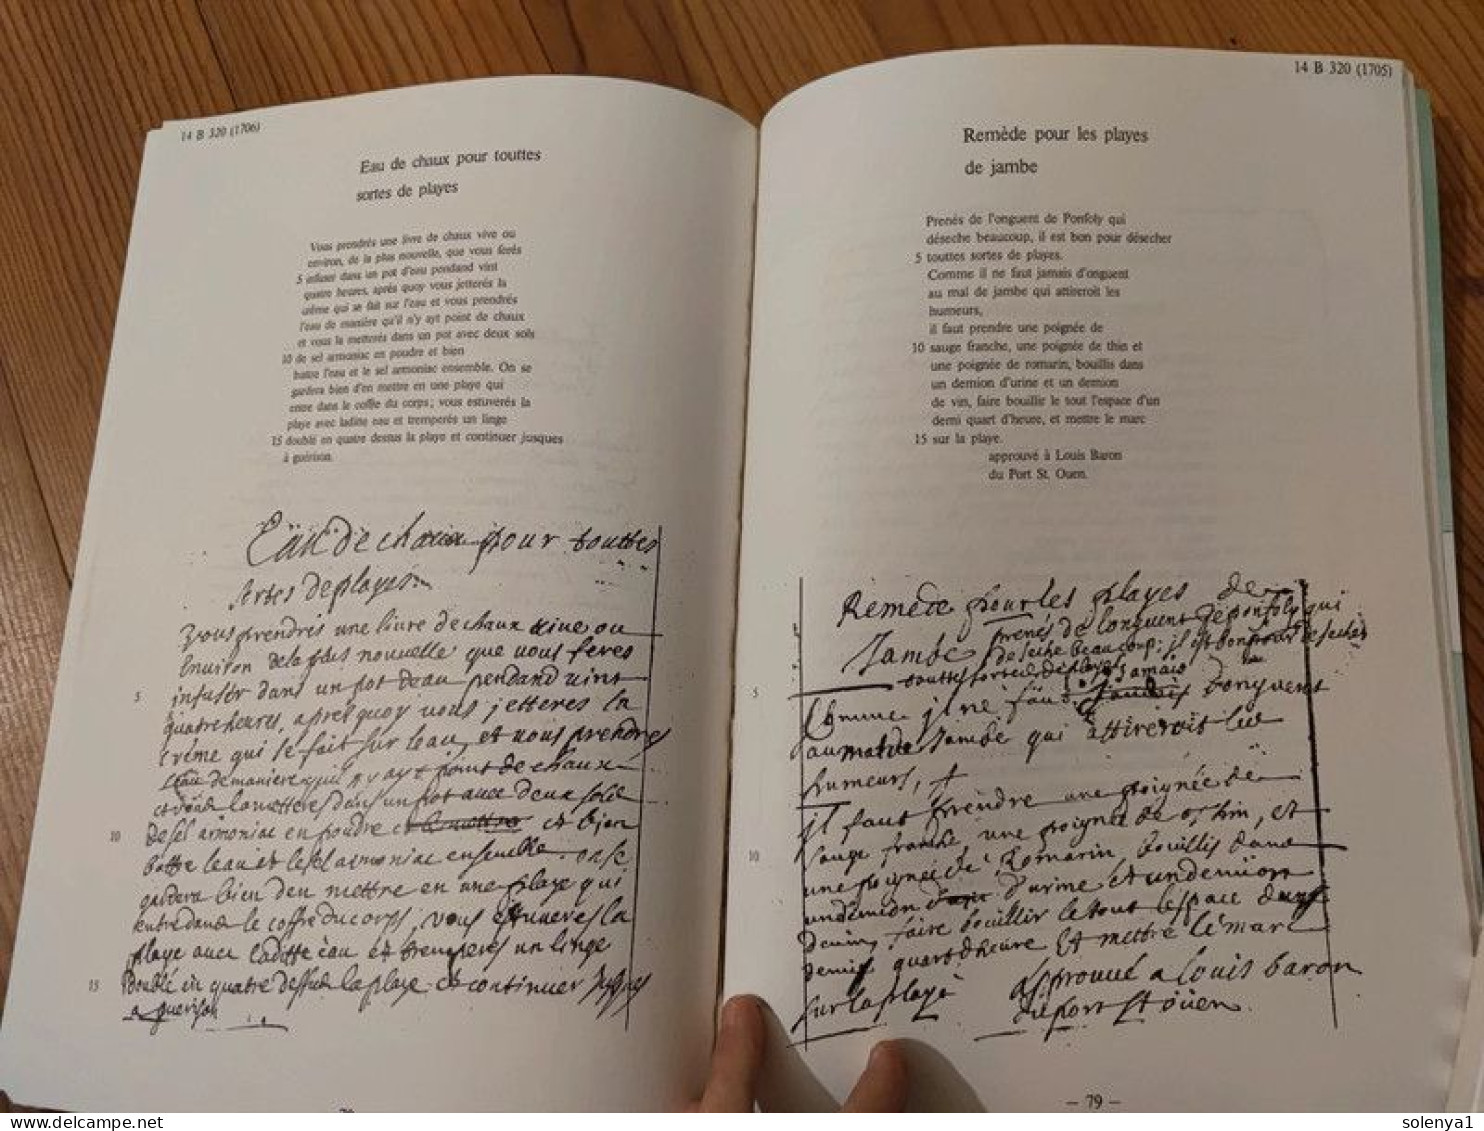 14 B 320 (1706)
Eau de chaux pour touttes
sortes de playes
Vous prendrés une livre de chaux vive ou
environ, de la plus nouvelle, que vous ferés
5 infuser dans un pot d'eau pendand vint
quatre heures, après quoy vous jetterés la
crème qui se fait sur l'eau et vous prendrés
l'eau de manière qu'il n'y ayt point de chaux
et vous la metterés dans un pot avec deux sols
10 de sel armoniac en poudre et bien
battre l'eau et le sel armoniac ensemble. On se
gardera bien d'en mettre en une playe qui
entre dans le coffre du corps; vous estuverés la
playe avec ladite eau et tremperés un linge
15 doublé en quatre dessus la playe et continuer jusques
à guérison.
Eau de chaux pour touttes
sortes de playes
vous prendrés une livre de chaux vive ou
environ de la plus nouvelle que vous feres
5 infuser dans un pot deau pendand vint
quatre heures, apres quoy vous jetteres la
Crème qui se fait sur leau, et vous prendres
leau de maniere quil ny ayt point de chaux
et vous la metteres dans un pot avec deux sols
10 de sel armoniac en poudre et bien
battre leau et le sel armoniac ensemble. on se
gardera bien den mettre en une playe qui
entre dans le coffre du corps, vous estuveres la
playe avec laditte eau et tremperes un linge
15 doublé en quatre dessus la playe et continuer jusques
a guerison
14 B 320 (1705)
Remède pour les playes
de jambe
Prenés de l'onguent de Ponfoly qui
déseche beaucoup, il est bon pour désecher
5 touttes sortes de playes.
Comme il ne faut jamais d'onguent
au mal de jambe qui attireroit les
humeurs,
il faut prendre une poignée de
10 sauge franche, une poignée de thin et
une poignée de romarin, bouillis dans
un demion d'urine et un demion
de vin, faire bouillir le tout l'espace d'un
demi quart d'heure, et mettre le marc
15 sur la playe.
approuvé à Louis Baron
du Port St. Ouen.
Remède pour les playes de
Jambe prenés de longuent de ponfoly qui
deseche beaucoup; il est bon pour desecher
touttes sortes de playes
5 Comme il ne faud jamais donguent
au mal de Jambe qui attireroit les
humeurs, +
il faut prendre une poignée de
sauge franche, une poignée de thin, et
10 une poignée de Romarin, bouillis dans
un demion d'urine et un demion
de vin, faire bouillir le tout lespace dun
demis quart dheure et mettre le marc
sur la playe
approuvé a Louis baron
du port St öuen
- 79 -
solenya1